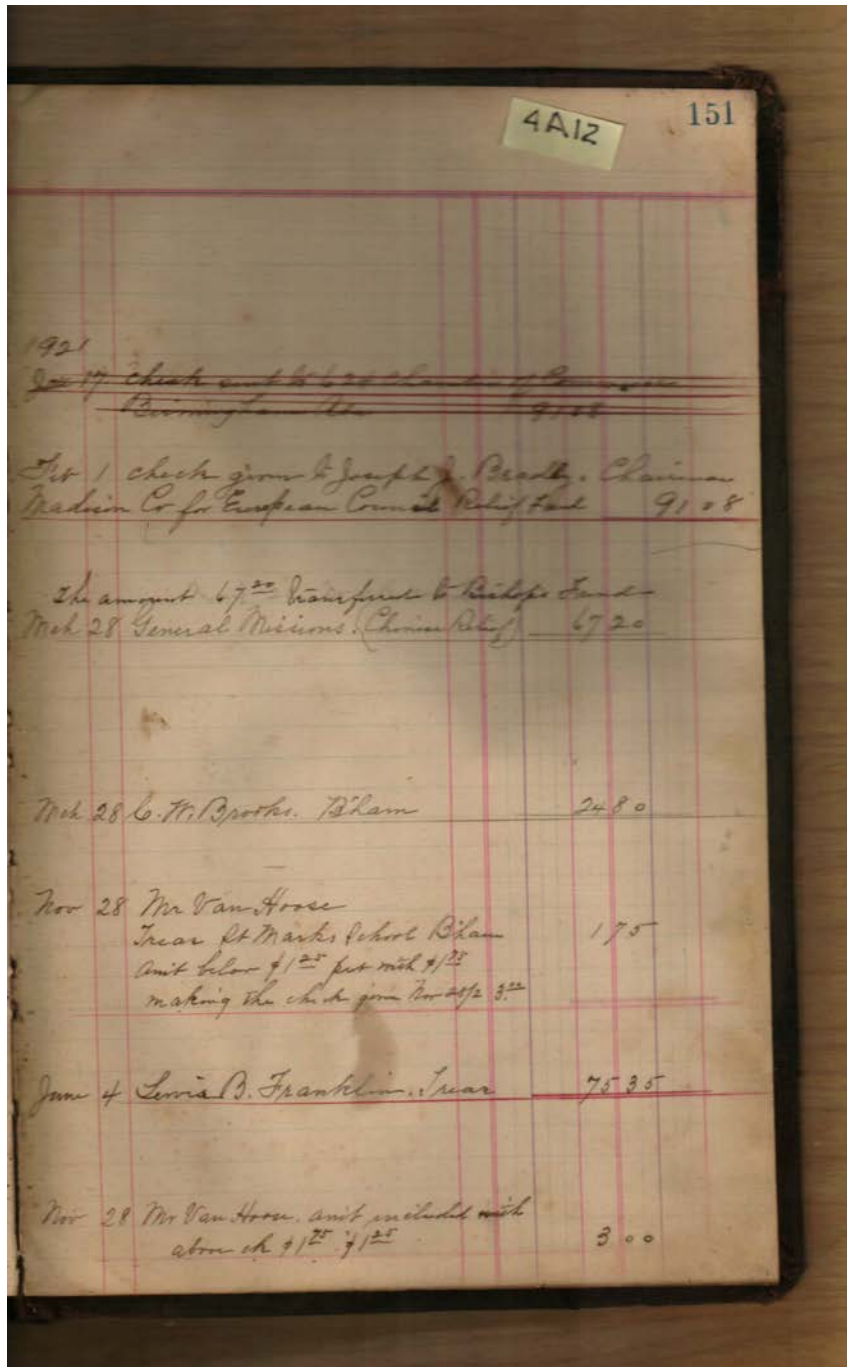 4A12
151
1921
Jan 17 check sent to Chamber of Commerce
Birmingham Ala 91 08
Feb 1 check given to Joseph J. Bradly. Chairman
Madison Co for European Council Relief Fund 91 08
The amount 67 20 transferred to Bishops Fund
Mch 28 General Missions. (Chinese Relief) 67 20
Mch 28 C. W. Brooks. B'ham 24 80
Nov 28 Mr Van Hoose
Treas St Marks School B'ham 1 75
amt below $1 25 put with $1 75
making the check given Nov 28/2 3 00
June 4 Lewis B. Franklin. Treas 75 35
Nov 28 Mr Van Hoose. amt included with
above ck $1 75 $1 25 3 00